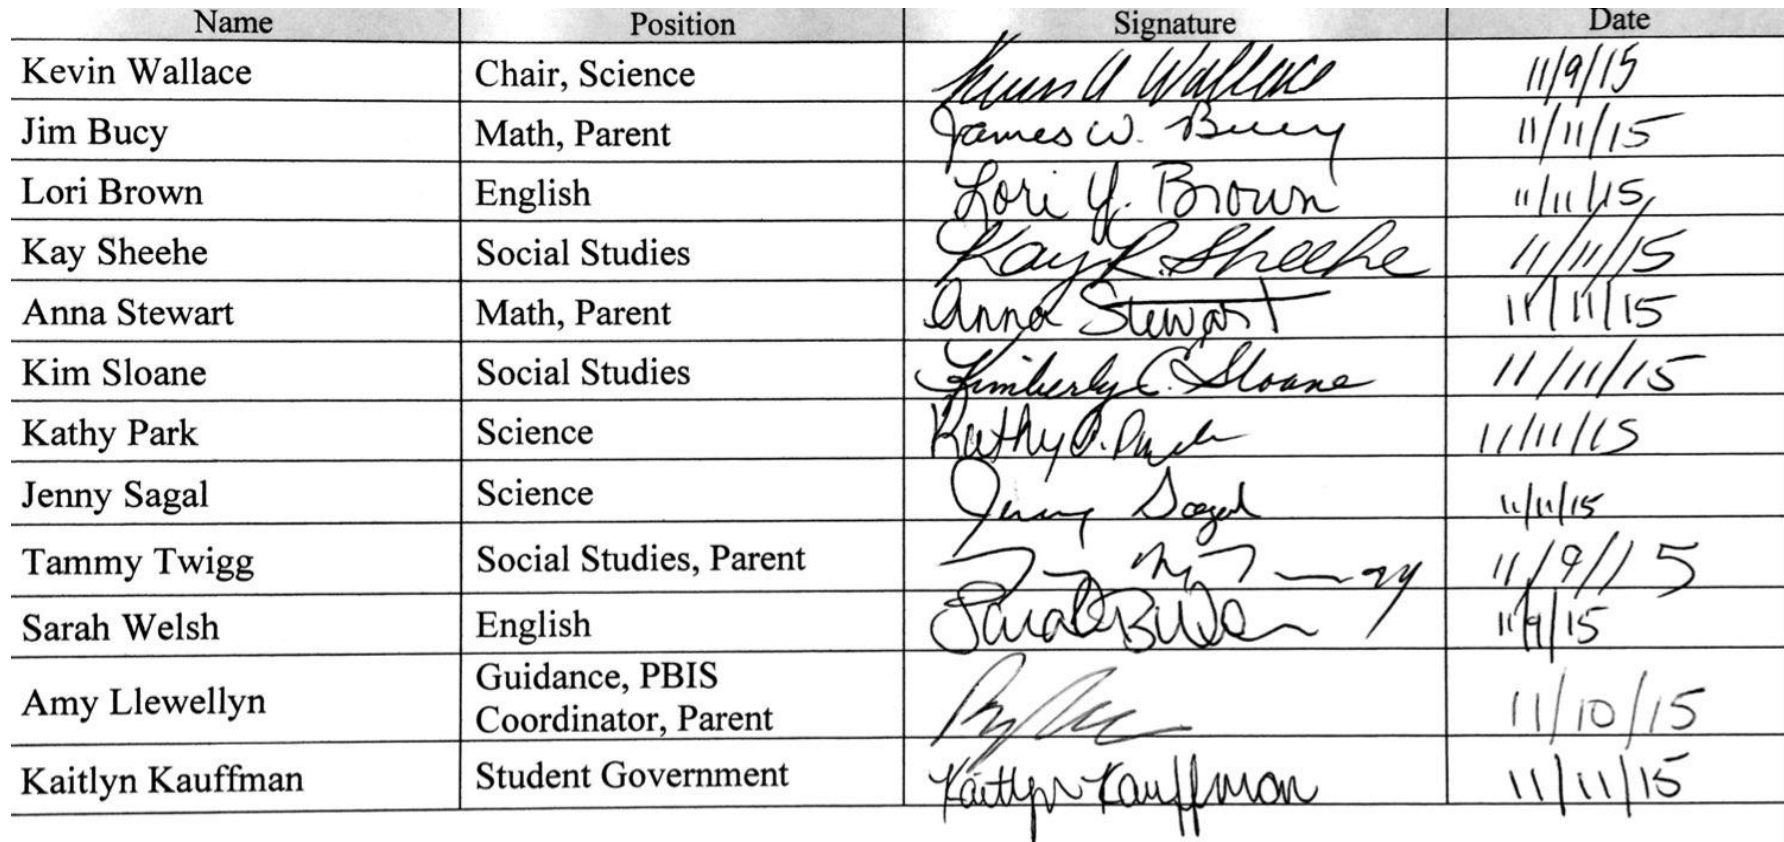 Name Position Signature Date
Kevin Wallace Chair, Science Kevin A Wallace 11/9/15
Jim Bucy Math, Parent James W. Bucy 11/11/15
Lori Brown English Lori Y. Brown 11/11/15
Kay Sheehe Social Studies Kay R. Sheehe 11/11/15
Anna Stewart Math, Parent Anna Stewart 11/11/15
Kim Sloane Social Studies Kimberly C. Sloane 11/11/15
Kathy Park Science Kathy 11/11/15
Jenny Sagal Science Jenny Sagal 11/11/15
Tammy Twigg Social Studies, Parent 11/9/15
Sarah Welsh English Sarah B 11/9/15
Amy Llewellyn Guidance, PBIS
Coordinator, Parent 11/10/15
Kaitlyn Kauffman Student Government Kaitlyn Kauffman 11/11/15